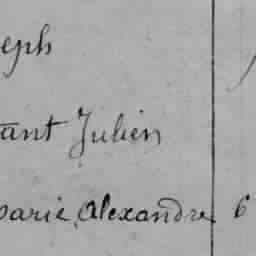 eph
tant Julien
parie Alexandre 6